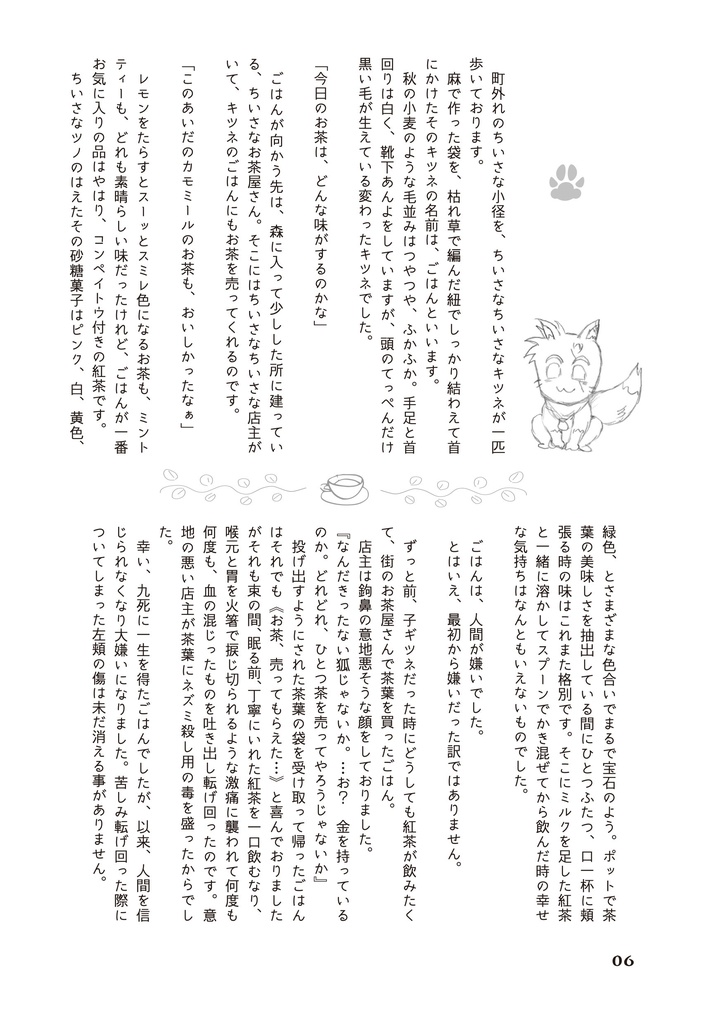 町外れのちいさな小径を、ちいさなちいさなキツネが一匹
歩いております。
麻で作った袋を、枯れ草で編んだ紐でしっかり結わえて首
にかけたそのキツネの名前は、ごはんといいます。
秋の小麦のような毛並みはつやつや、ふかふか。手足と首
回りは白く、靴下あんよをしていますが、頭のてっぺんだけ
黒い毛が生えている変わったキツネでした。
「今日のお茶は、どんな味がするのかな」
ごはんが向かう先は、森に入って少しした所に建ってい
る、ちいさなお茶屋さん。そこにはちいさなちいさな店主が
いて、キツネのごはんにもお茶を売ってくれるのです。
「このあいだのカモミールのお茶も、おいしかったなぁ」
レモンをたらすとスーッとスミレ色になるお茶も、ミント
ティーも、どれも素晴らしい味だったけれど、ごはんが一番
お気に入りの品はやはり、コンペイトウ付きの紅茶です。
ちいさなツノのはえたその砂糖菓子はピンク、白、黄色、
緑色、とさまざまな色合いでまるで宝石のよう。ポットで茶
葉の美味しさを抽出している間にひとつふたつ、口一杯に頬
張る時の味はこれまた格別です。そこにミルクを足した紅茶
と一緒に溶かしてスプーンでかき混ぜてから飲んだ時の幸せ
な気持ちはなんともいえないものでした。
ごはんは、人間が嫌いでした。
とはいえ、最初から嫌いだった訳ではありません。
ずっと前、子ギツネだった時にどうしても紅茶が飲みたく
て、街のお茶屋さんで茶葉を買ったごはん。
店主は鉤鼻の意地悪そうな顔をしておりました。
『なんだきったない狐じゃないか。…お？　金を持っている
のか。どれどれ、ひとつ茶を売ってやろうじゃないか』
投げ出すようにされた茶葉の袋を受け取って帰ったごはん
はそれでも《お茶、売ってもらえた…》と喜んでおりました
がそれも束の間、眠る前、丁寧にいれた紅茶を一口飲むなり、
喉元と胃を火箸で捩じ切られるような激痛に襲われて何度も
何度も、血の混じったものを吐き出し転げ回ったのです。意
地の悪い店主が茶葉にネズミ殺し用の毒を盛ったからでし
た。
幸い、九死に一生を得たごはんでしたが、以来、人間を信
じられなくなり大嫌いになりました。苦しみ転げ回った際に
ついてしまった左頬の傷は未だ消える事がありません。
06